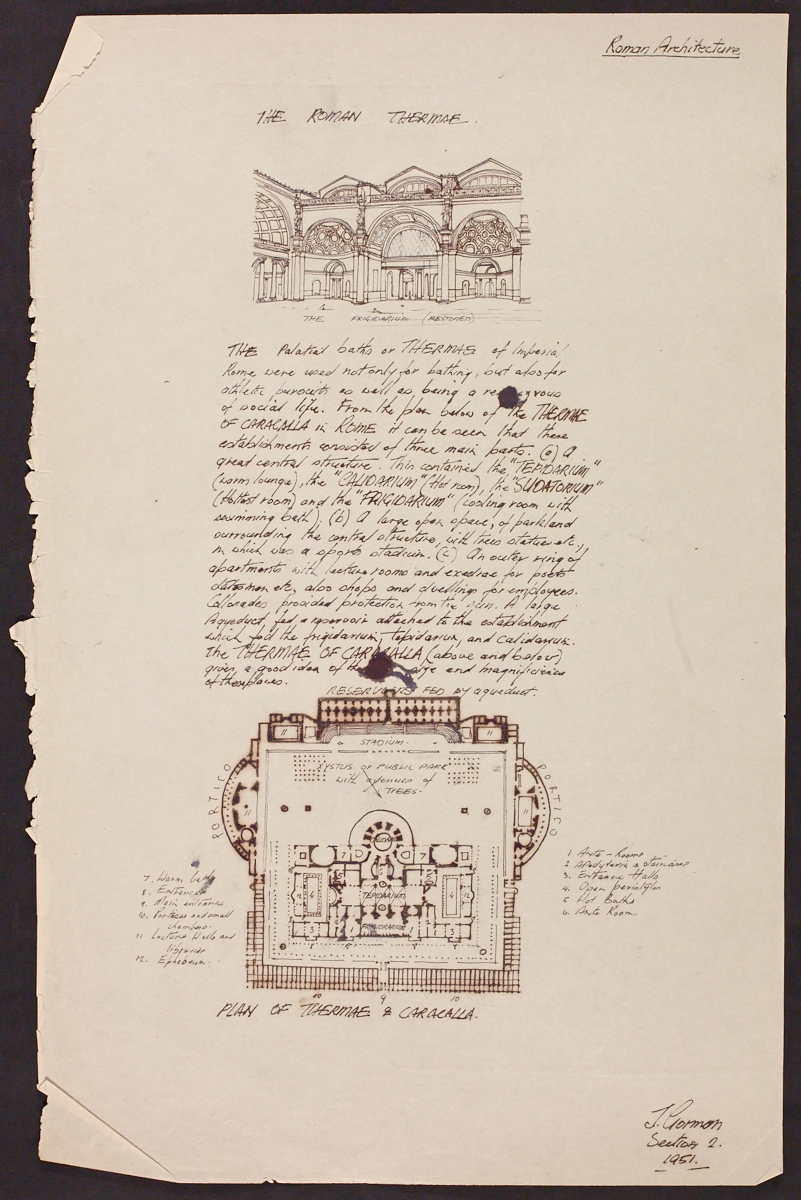 Roman Architecture
THE ROMAN THERMAE.
THE FRIGIDARIUM (RESTORED)
THE Palatial baths or THERMAE of Imperial
Rome were used not only for bathing, but also for
athletic pursuits as well as, being a re vous
of social life. From the plan below of the THERMAE
OF CARACALLA in ROME it can be seen that these
establishments consisted of three main parts. (a) A
great central structure. This contained the "TEPIDARIUM"
(warm lounge), the "CALIDARIUM" (Hot room), the "SUDATORIUM"
(Hottest room) and the "FRIGIDARIUM" (cooling room with
swimming bath). (b) A large open space, of parkland
surrounding the central structure, with trees statue etc,
in which was a sports stadium. (c) An outer ring of
apartments with lecture rooms and exedrae for poets
statesmen etc, also shops and dwellings for employees.
Collonades provided protection from the sun. A large
Aqueduct, fed a reservoir attached to the establishment
which fed the frigidarium, tepidarium, and calidarium.
The THERMAE OF CARACALLA (above and below)
gives a good idea of the size and magnificience
of these places.
RESERVOIRS FED by aqueduct.
11
11
STADIUM.
XYSTUS OF PUBLIC PARK
with avenues of
TREES.
PORTICO
PORTICO
11
11
7
7
5
5
4
4
TEPIDARIUM
FRIGIDARIUM
3
3
1
1
1 Ante-Rooms
2 Apodyteria & staircases
3. Entrance Halls
4. Open peristyles
5 Hot Baths
6. Ante Room.
7. Warm baths
8. Entrance
9. Main entrance
10. Porticos and small
chambers.
11 Lecture Halls and
libraries
12. Ephebeum.
10 9 10
PLAN OF THERMAE & CARACALLA.
J. Gorman
Section 2.
1951.